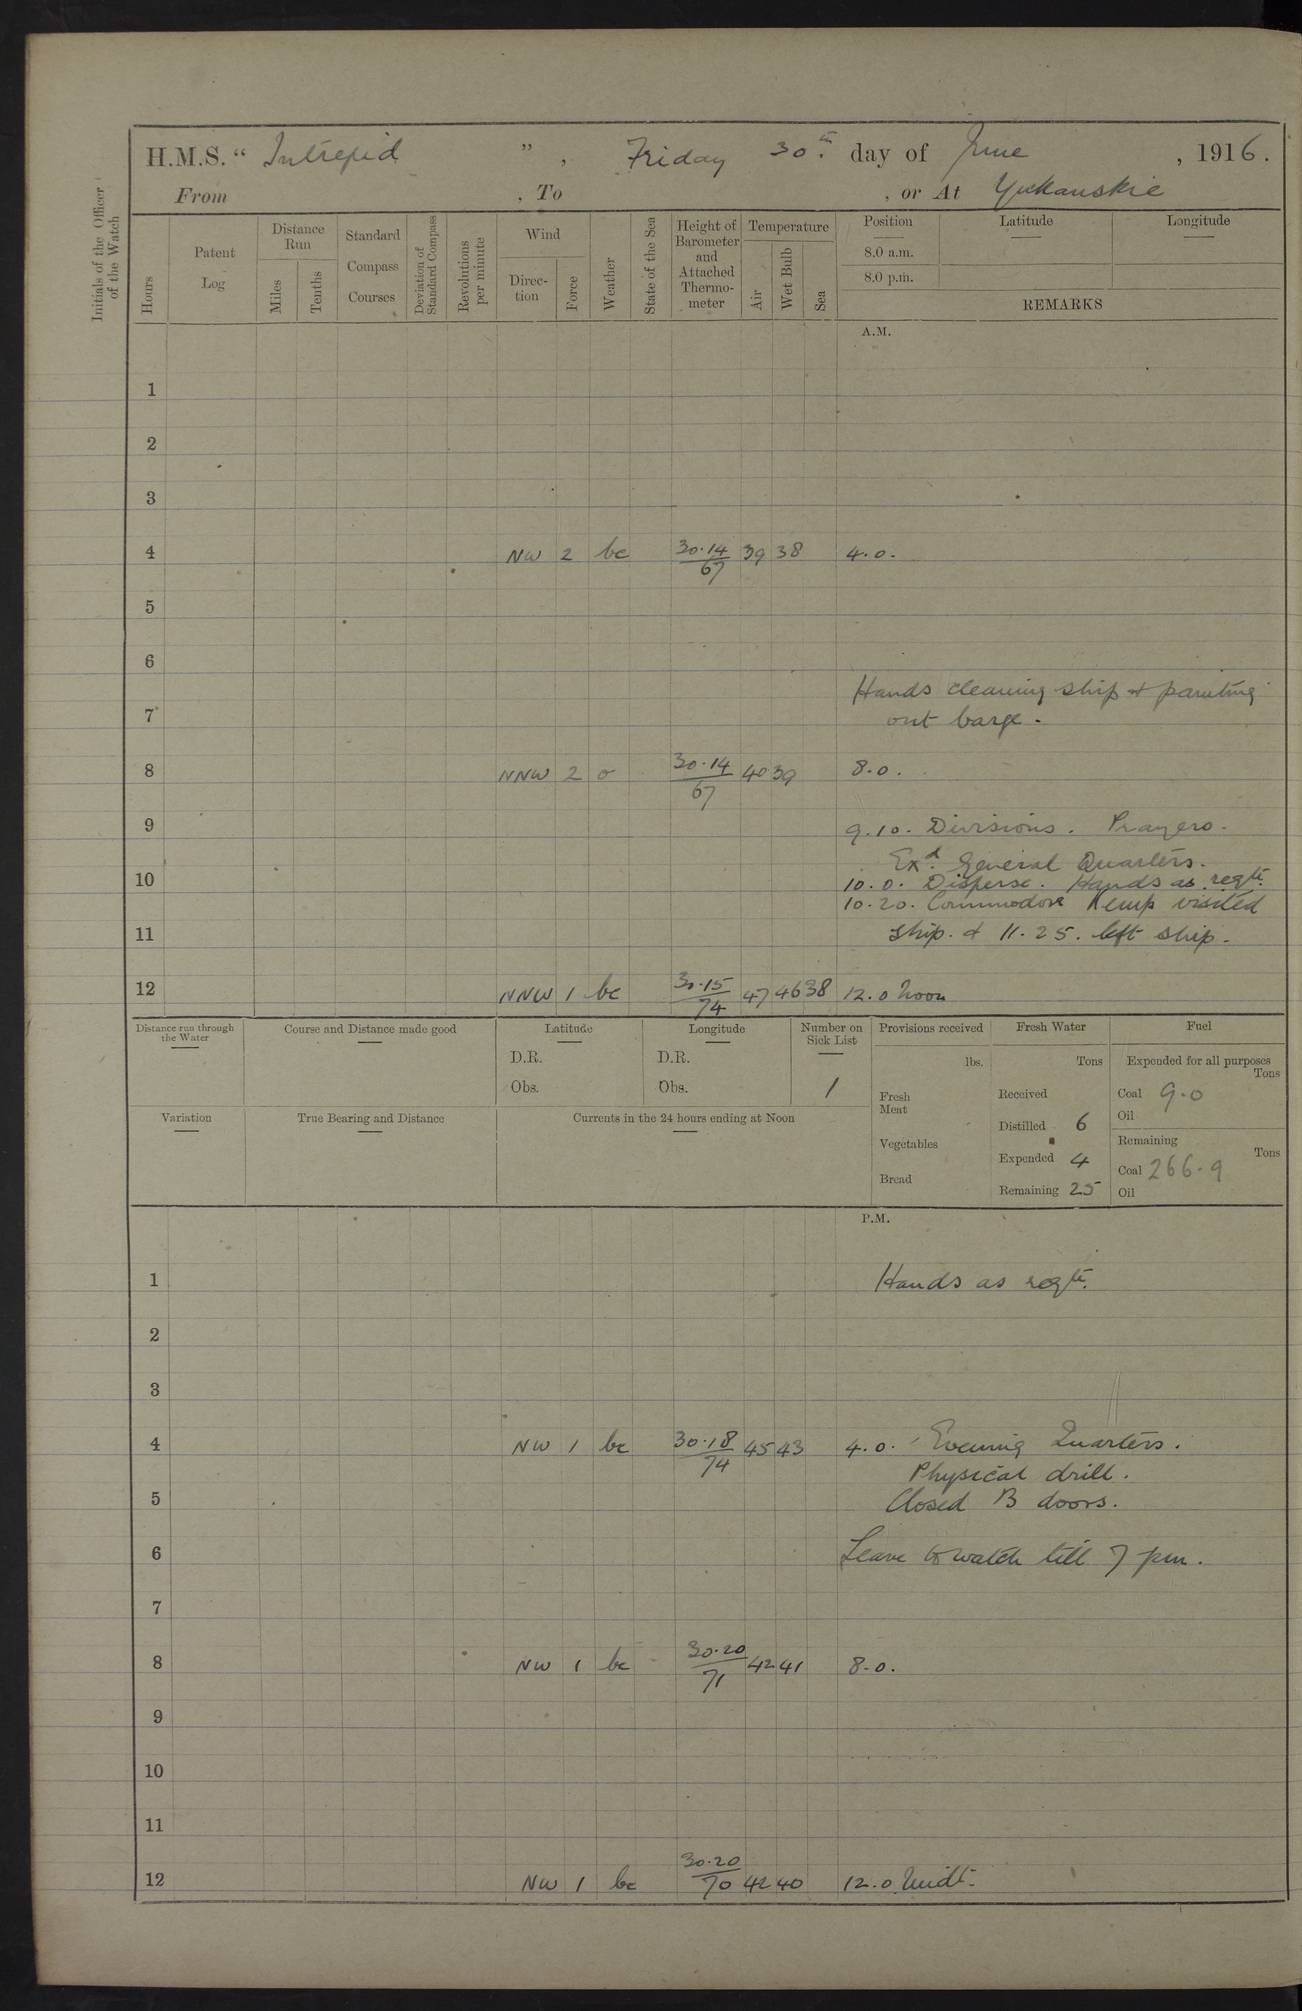 H.M.S. “ Intrepid ” , Friday 30th. day of June , 1916.
From , To , or At Yukanskie
Initials of the Officer of the Watch
Hours
Patent Log
Distance Run
Miles
Tenths
Standard Compass Courses
Deviation of Standard Compass
Revolutions per minute
Wind
Direction
Force
Weather
State of the Sea
Height of Barometer and Attached Thermometer
Temperature
Air
Wet Bulb
Sea
Position
Latitude
Longitude
8.0 a.m.
8.0 p.m.
REMARKS
A.M.
1
2
3
4 NW 2 bc 30.14/67 39 38 4.0.
5
6
Hands cleaning ship & painting
7 out barge.
8 NNW 2 o 30.14/67 40 39 8.0.
9 9.10. Divisions. Prayers.
Exd. General Quarters.
10 10.0. Disperse. Hands as reqte.
10.20. Commodore Kemp visited
11 ship. & 11.25. left ship.
12 NNW 1 bc 30.15/74 47 46 38 12.0 Noon
Distance run through the Water
Course and Distance made good
Latitude
D.R.
Obs.
Longitude
D.R.
Obs.
Number on Sick List
1
Variation
True Bearing and Distance
Currents in the 24 hours ending at Noon
Provisions received
lbs.
Fresh Meat
Vegetables
Bread
Fresh Water
Tons
Received
Distilled 6
Expended 4
Remaining 25
Fuel
Expended for all purposes
Tons
Coal 9.0
Oil
Remaining
Tons
Coal 266.9
Oil
P.M.
1 Hands as reqte.
2
3
4 NW 1 bc 30.18/74 45 43 4.0. Evening Quarters.
Physical drill.
5 Closed B doors.
6 Leave to watch till 7 pm.
7
8 NW 1 bc 30.20/71 42 41 8.0.
9
10
11
12 NW 1 bc 30.20/70 42 40 12.0 Midt.